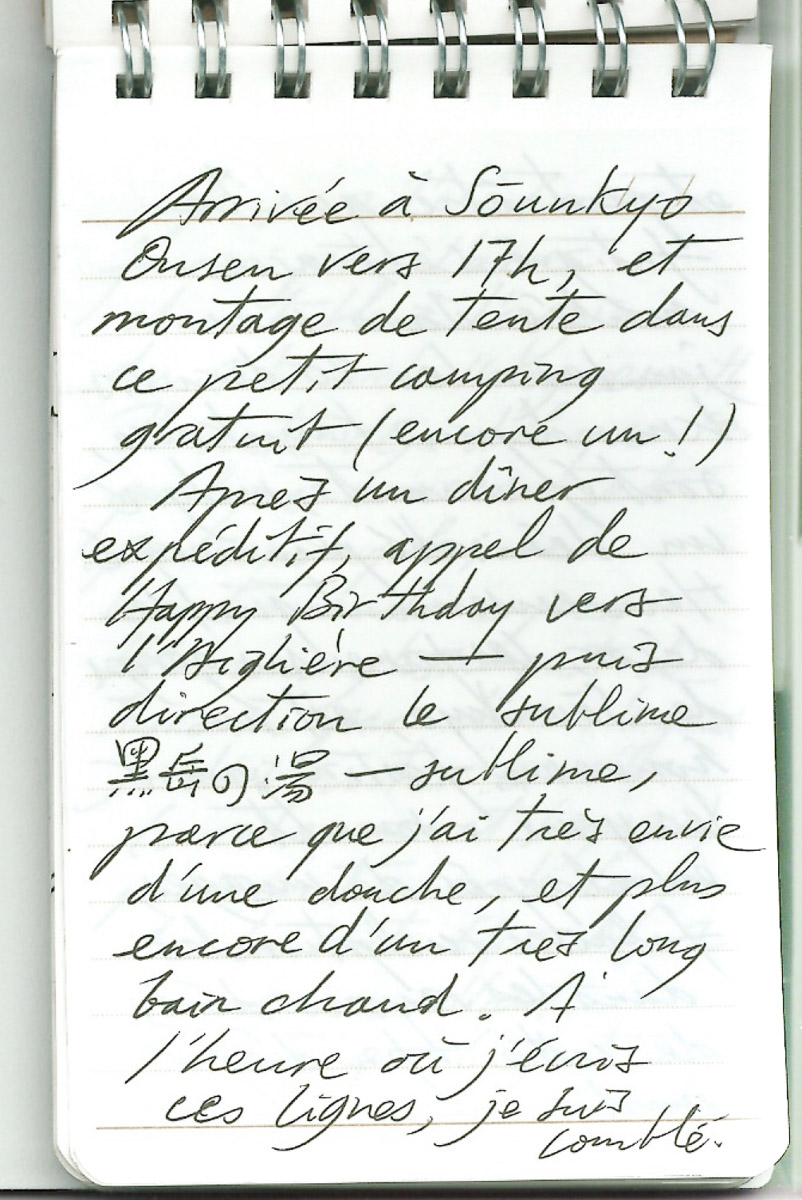 Arrivée à Sōunkyo
Onsen vers 17h, et
montage de tente dans
ce petit camping
gratuit (encore un!)
Après un dîner
expéditif, appel de
Happy Birthday vers
l'Argilière — puis
direction le sublime
黒岳の湯 — sublime,
parce que j'ai très envie
d'une douche, et plus
encore d'un très long
bain chaud. A
l'heure où j'écris
ces lignes, je suis
comblé.